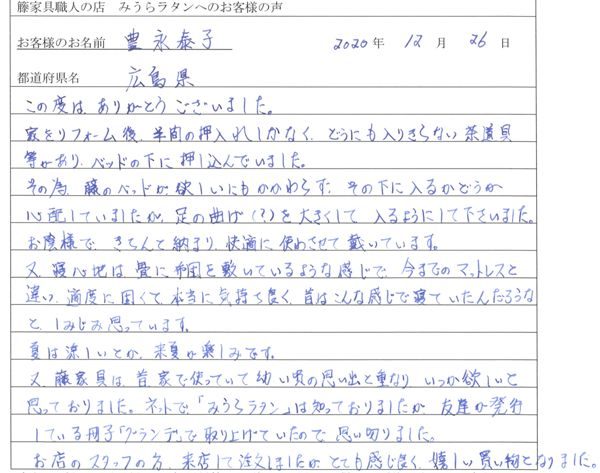 籐家具職人の店 みうらラタンへのお客様の声
お客様のお名前 豊永泰子 2020年 12月 26日
都道府県名 広島県
この度は、ありがとうございました。
家をリフォーム後、半間の押入れしかなく、どうにも入りきらない茶道具
等があり、ベッドの下に押し込んでいました。
その為、藤のベッドが欲しいにもかかわらず、その下に入るかどうか
心配していましたが、足の曲げ(?)を大きくして入るようにして下さいました。
お陰様で、きちんと納まり、快適に使わさせて戴いています。
又、寝心地は畳に布団を敷いているような感じで、今までのマットレスと
違い、適度に固くて、本当に気持ち良く、昔はこんな感じで寝ていたんだろうな
と、しみじみ思っています。
夏は涼しいとか、来夏が楽しみです。
又、藤家具は、昔家で使っていて幼い頃の思い出と重なり、いつか欲しいと
思っておりました。ネットで「みうらラタン」は知っておりましたが、友達が発行
している冊子「グランデ」で取り上げていたので、思い切りました。
お店のスタッフの方、来店して注文しましたが、とても感じ良く、嬉しい買い物となりました。